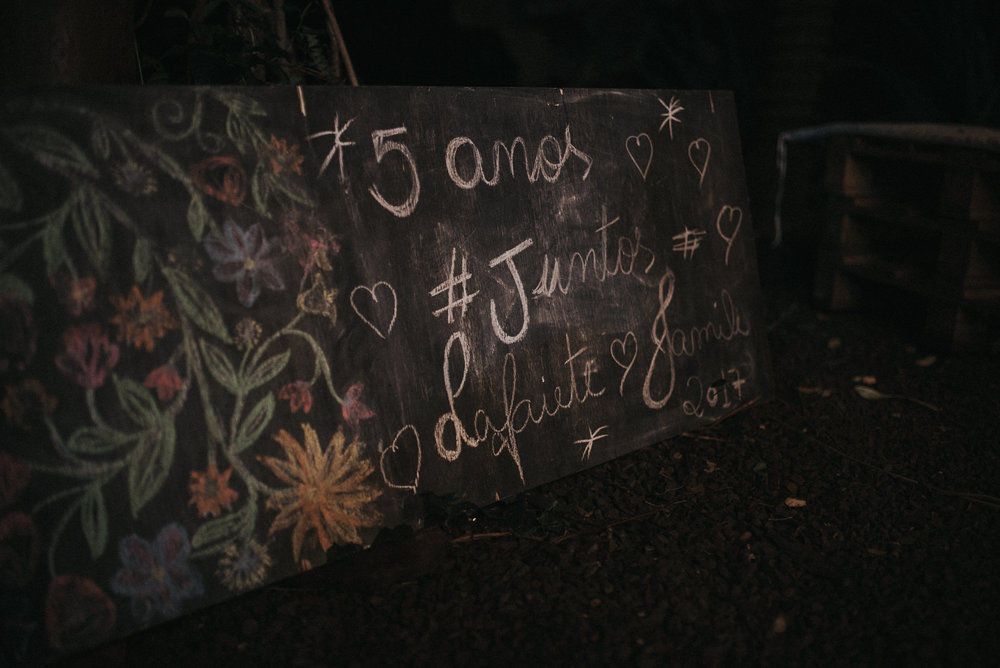 5 anos
#Juntos#
Lafaiete Jamile
2017